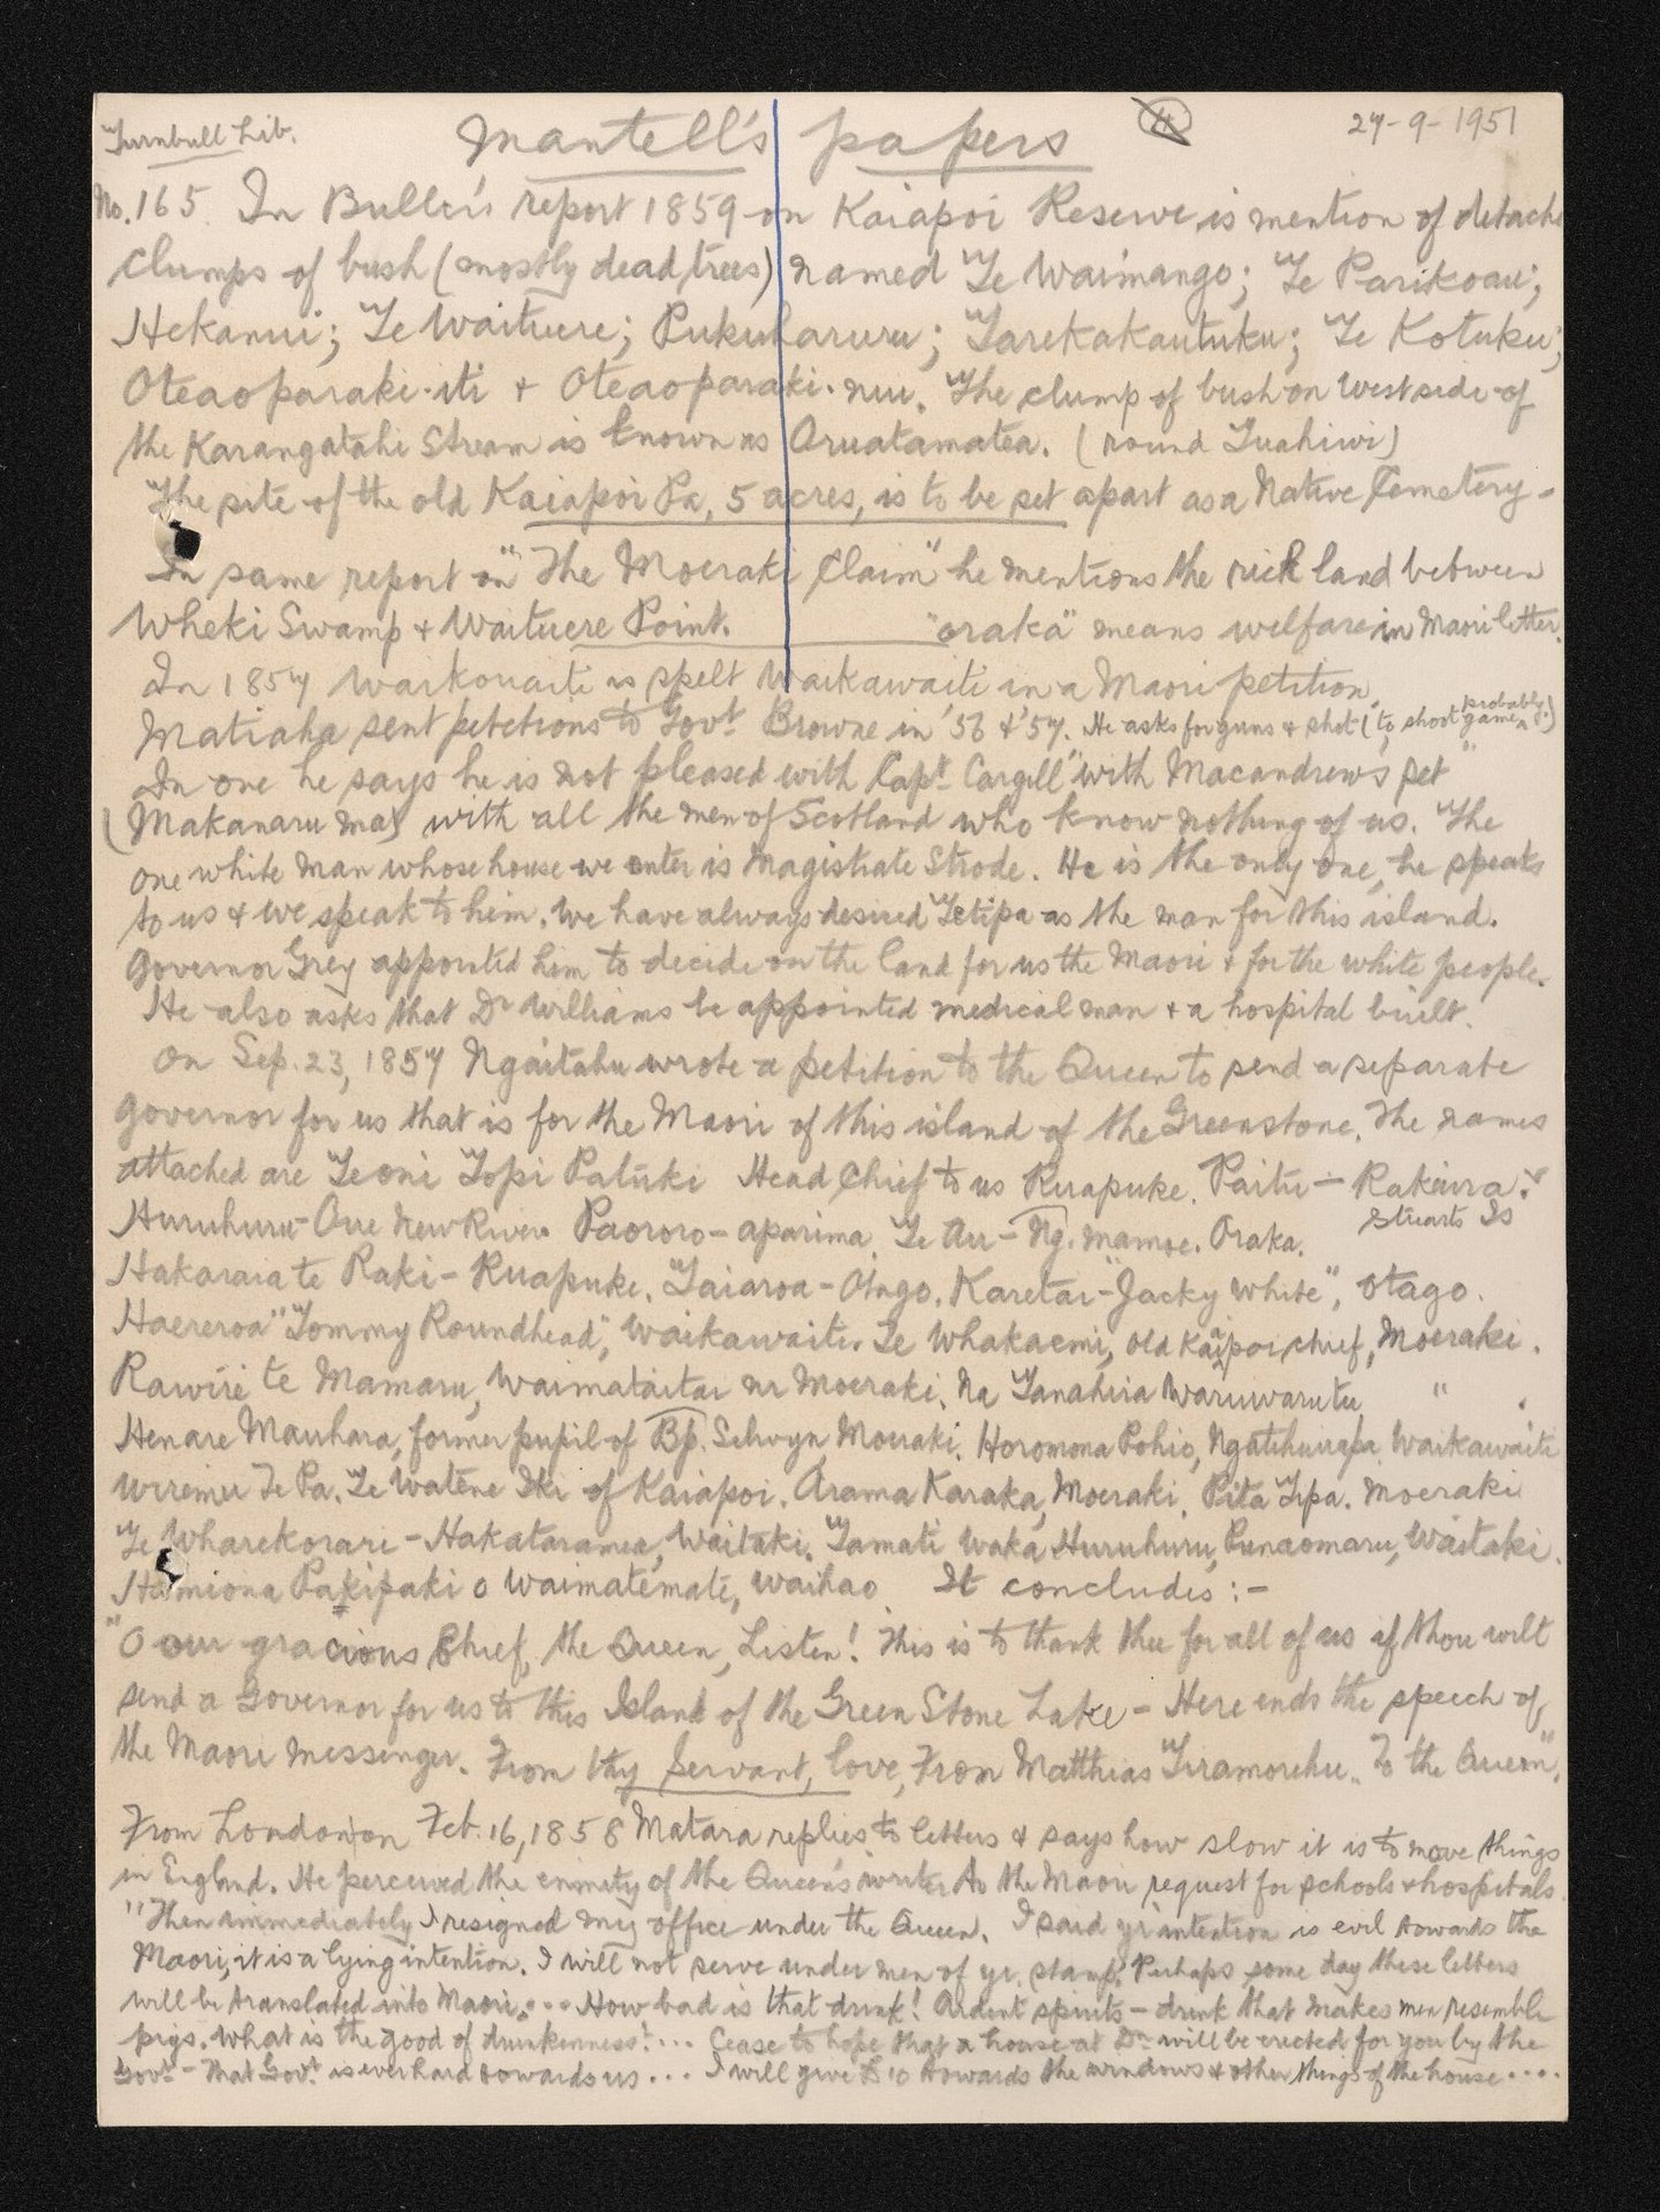 Turnbull Lib. Mantell's papers 4 27-9-1951
No. 165. In Buller's report 1859 on Kaiapoi Reserve is mention of detache
clumps of bush (mostly dead trees) named Te Waimango; Te Parikoau;
Hekanui; Te Waituere; Pukuharuru; Tarekakautuku; Te Kotuku;
Oteaoparaki-iti & Oteaoparaki-nui. The clump of bush on West side of
the Karangatahi Stream is known as Oruatamatea. (round Tuahiwi)
The site of the old Kaiapoi Pa, 5 acres, is to be set apart as a Native Cemetery -
In same report on "The Moeraki Claim" he mentions the rich land between
Wheki Swamp & Waituere Point. "oraka" means welfare in Maori letter.
In 1857 Waikouaiti is spelt Waikawaiti in a Maori petition.
Matiaha sent petitions to Govr Browne in '56 & '57. He asks for guns & shot (to shoot game probably)
In one he says he is not pleased with Capt Cargill "with Macandrew's set"
(Makanaru ma) with all the men of Scotland who know nothing of us. The
one white man whose house we enter is Magistrate Strode. He is the only one, he speaks
to us & we speak to him. We have always desired Tetipa as the man for this island.
Governor Grey appointed him to decide on the land for us the Maori & for the white people.
He also asks that Dr Williams be appointed medical man & a hospital built.
On Sep. 23, 1857 Ngaitahu wrote a petition to the Queen to send a separate
Governor for us that is for the Maori of this island of the Greenstone. The names
attached are Teoni Topi Patuki Head Chief to us Ruapuke. Paitu - Rakiura.
Stuarts Is
Huruhuru - Oue New River. Paororo - aparima. Te Au - Ng. mamoe. Oraka.
Hakaraia te Raki - Ruapuke. Taiaroa - Otago. Karetai - "Jacky White", Otago.
Haereroa "Tommy Roundhead", Waikawaiti. Te Whakaemi, old Kaiapoi chief, Moeraki.
Rawiri te Mamaru, Waimataitai nr Moeraki. Na Tanahira Waruwarutu " .
Henare Mauhara, former pupil of Bp. Selwyn Moeraki. Horomona Pohio, Ngatihuirapa Waikawaiti
Wiremu Te Pa. Te Watene Iki of Kaiapoi. Arama Karaka, Moeraki. Pita Tipa. Moeraki
Te Wharekorari - Hakataramea, Waitaki. Tamati Waka Huruhuru, Punaomaru, Waitaki.
Hamiona Pakipaki o Waimatemate, Waihao. It concludes :-
"O our gracious Chief, the Queen, Listen! This is to thank thee for all of us if thou wilt
send a Governor for us to this Island of the Green Stone Lake - Here ends the speech of
the Maori messenger. From thy servant, love, From Matthias Tiramorehu. To the Queen".
From London on Feb. 16, 1858 Matara replies to letters & says how slow it is to move things
in England. He perceived the enmity of the Queen's writer to the Maori request for schools & hospitals.
"Then immediately I resigned my office under the Queen. I said yr intention is evil towards the
Maori, it is a lying intention. I will not serve under men of yr. stamp. Perhaps some day these letters
will be translated into Maori.... How bad is that drink! Ardent spirits - drink that makes men resemble
pigs. What is the good of drunkenness?... Cease to hope that a house at Dn will be erected for you by the
Govt - That Govt is ever hard towards us... I will give £10 towards the windows & other things of the house....